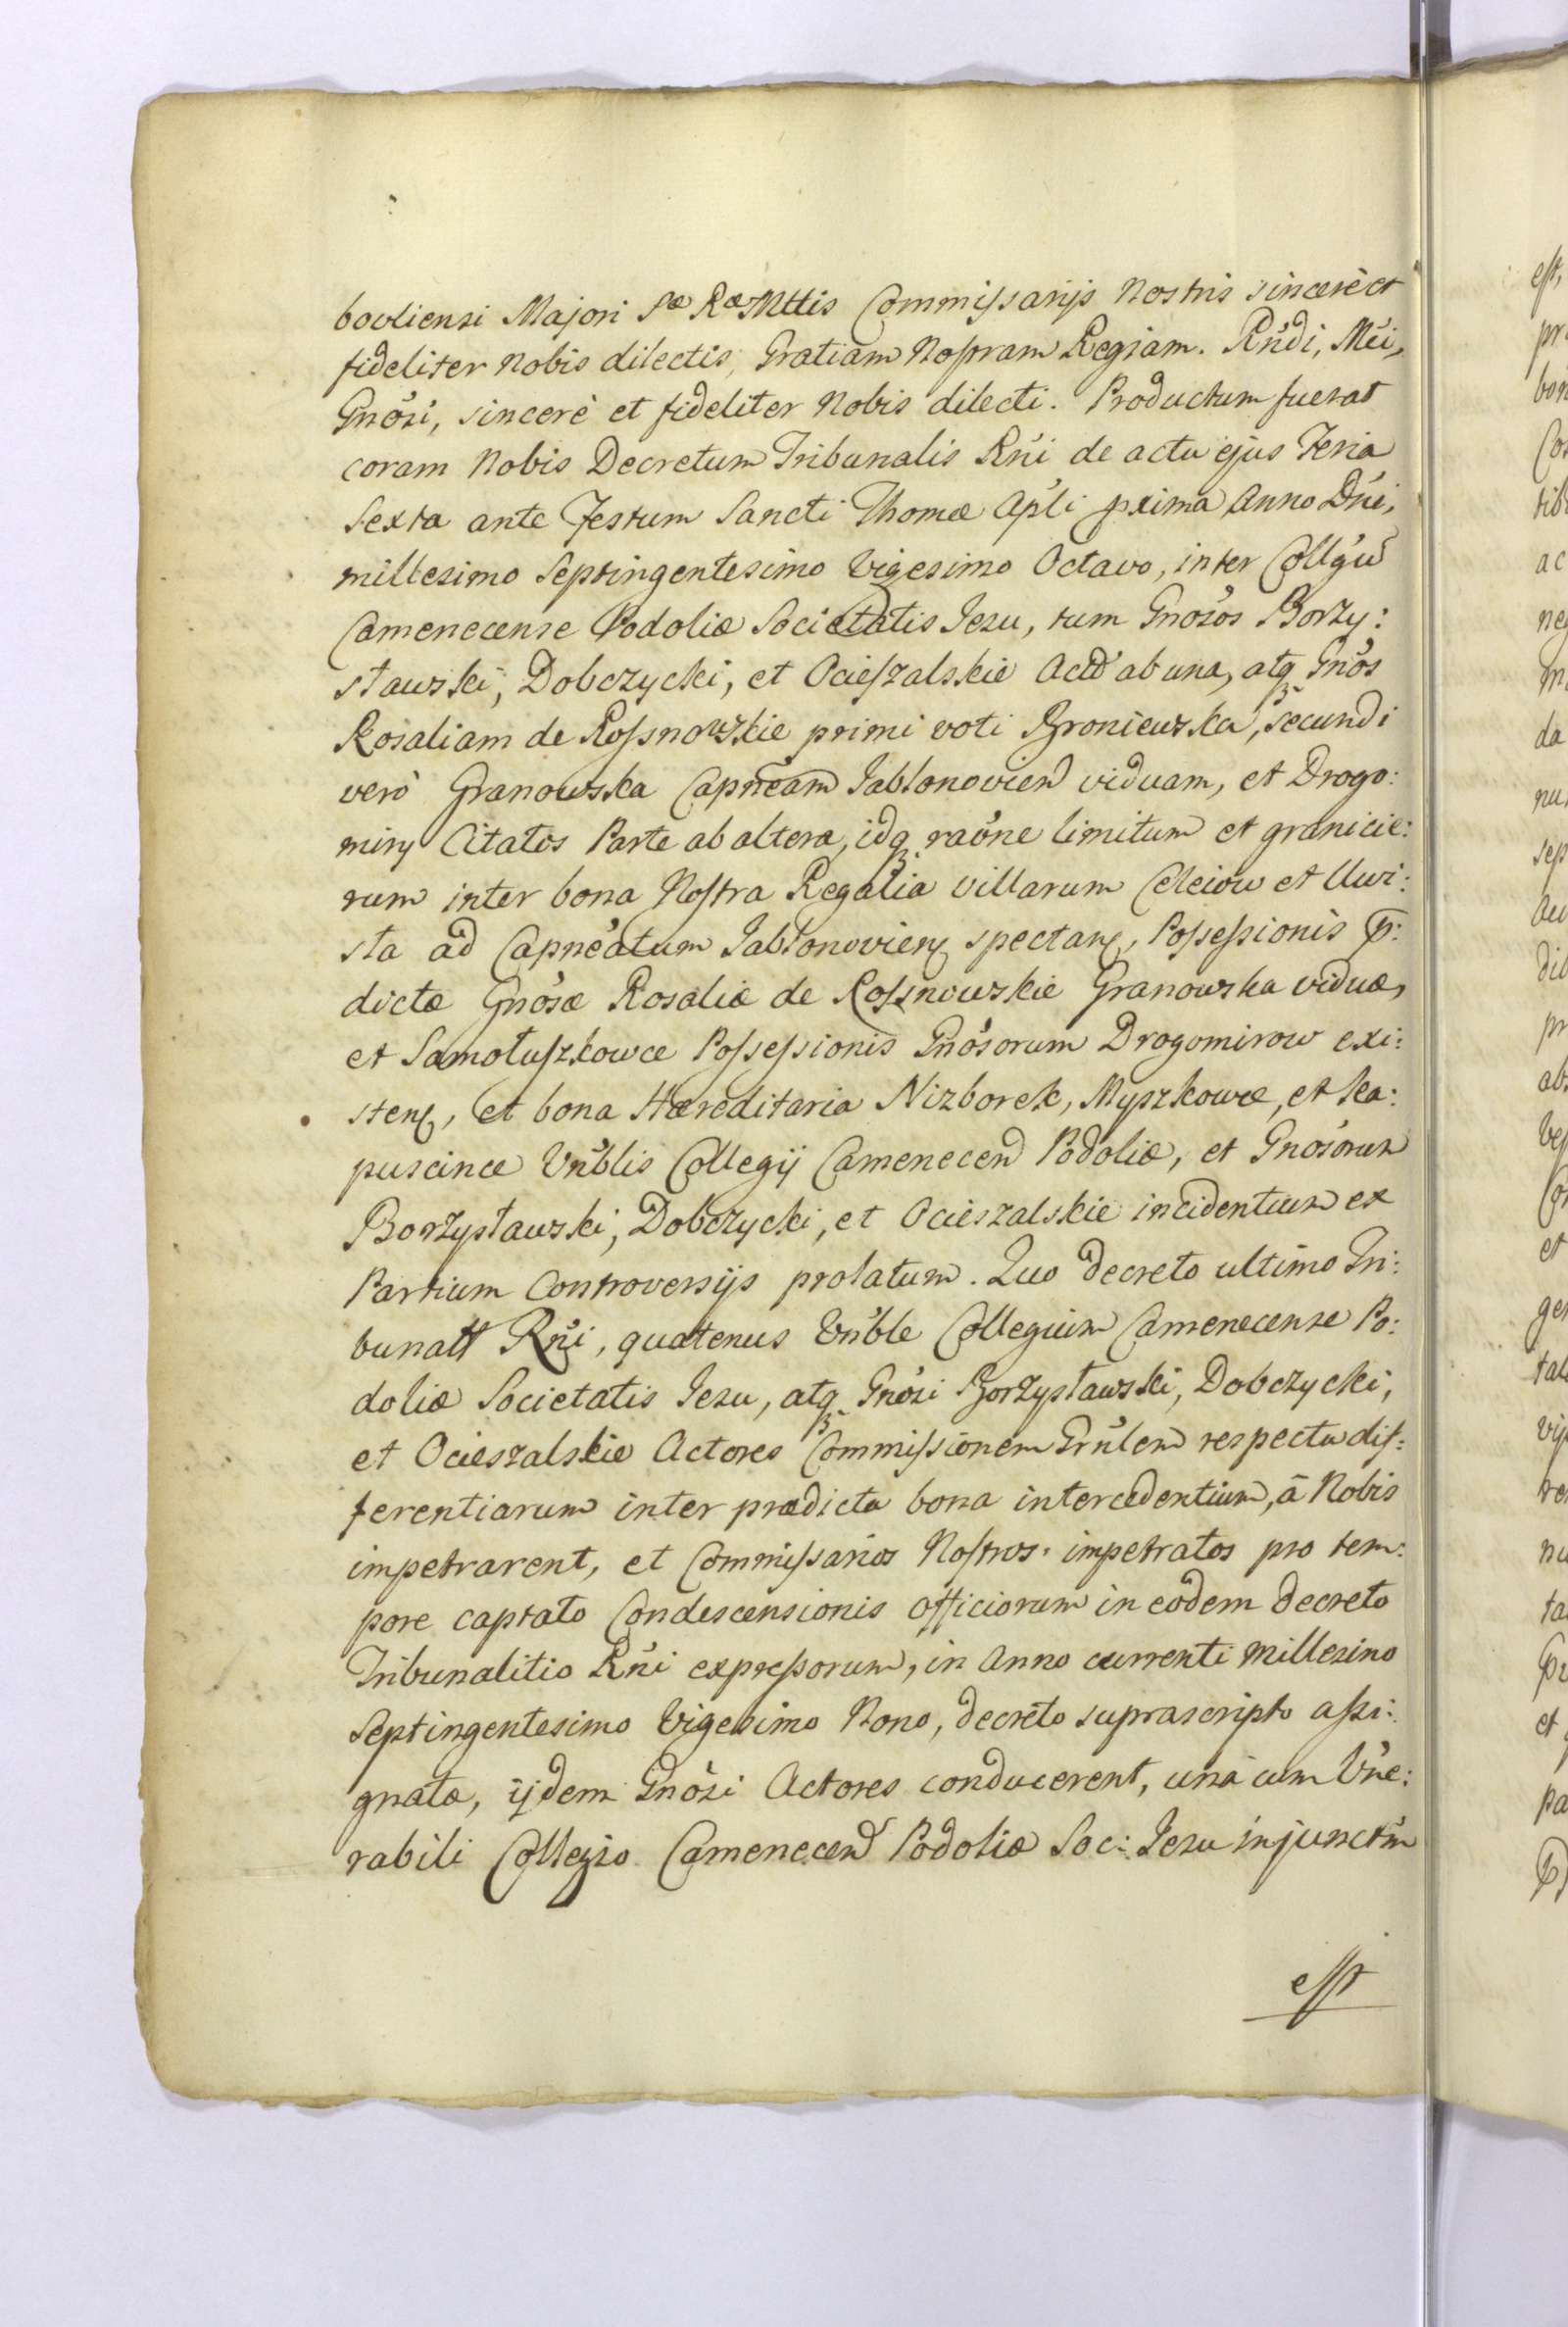 bovliensi Majori Sæ Ræ Mttis Commissarijs Nostris sincerè et
fideliter Nobis dilectis, Gratiam Nostram Regiam. Rńdi, Mći,
Gnósi, sincerè et fideliter Nobis dilecti. Productum fuerat
coram Nobis Decretum Tribunalis Rńi de actu ejus Feria
Sexta ante Festum Sancti Thomæ Apłi pxima Anno Dńi,
millesimo Septingentesimo Vigesimo Octavo, inter Collgiū
Camenecense Podoliæ Societatis Iesu, tum Gnósos Borzy:
sławski, Dobczycki, et Ocieszalskie Actō ab una, atq́ Gnós
Rosaliam de Rossnowskie primi voti Broniewska, secundi
verò Granowska Capnéam Jabłonovien̄ viduam, et Drogo:
miry Citatos Parte ab altera, idq́ raóne limitum et granicie:
rum inter bona Nostra Regalia villarum Celeiow et Uwi:
sła ad Capnéatum Jabłonovien̄ spectan̄, Possessionis p̄:
dictæ Gnósæ Rosaliæ de Rossnowskie Granowska viduæ,
et Samołuszkowce Possessionis Gnósorum Drogomirow exi:
sten̄, et bona Hæreditaria Nizborek, Myszkowce, et Ka:
puscince Vńblis Collegij Camenecen̄ Podoliæ, et Gnósorum
Borzysławski, Dobczycki, et Ocieszalskie incidentium ex
Partium Controversijs prolatum. Quo decreto ultimo Tri:
bunałł Rńi, quatenus Vńble Collegium Camenecense Po:
doliæ Societatis Iesu, atq́ Gnósi Borzysławski, Dobczycki,
et Ocieszalskie Actores Commissionem Grńlem respectu dif:
ferentiarum inter prædicta bona intercedentium, à Nobis
impetrarent, et Commissarios Nostros impetratos pro tem:
pore captato Condescensionis officiorum in eodem decreto
Tribunalitio Rńi expressorum, in Anno currenti Millesimo
Septingentesimo Vigesimo Nono, decreto suprascripto assi:
gnatæ, ijdem Gnósi Actores conducerent, unà cum Vńe:
rabili Collegio Camenecen̄ Podoliæ Soc: Iesu injunctm̄
est